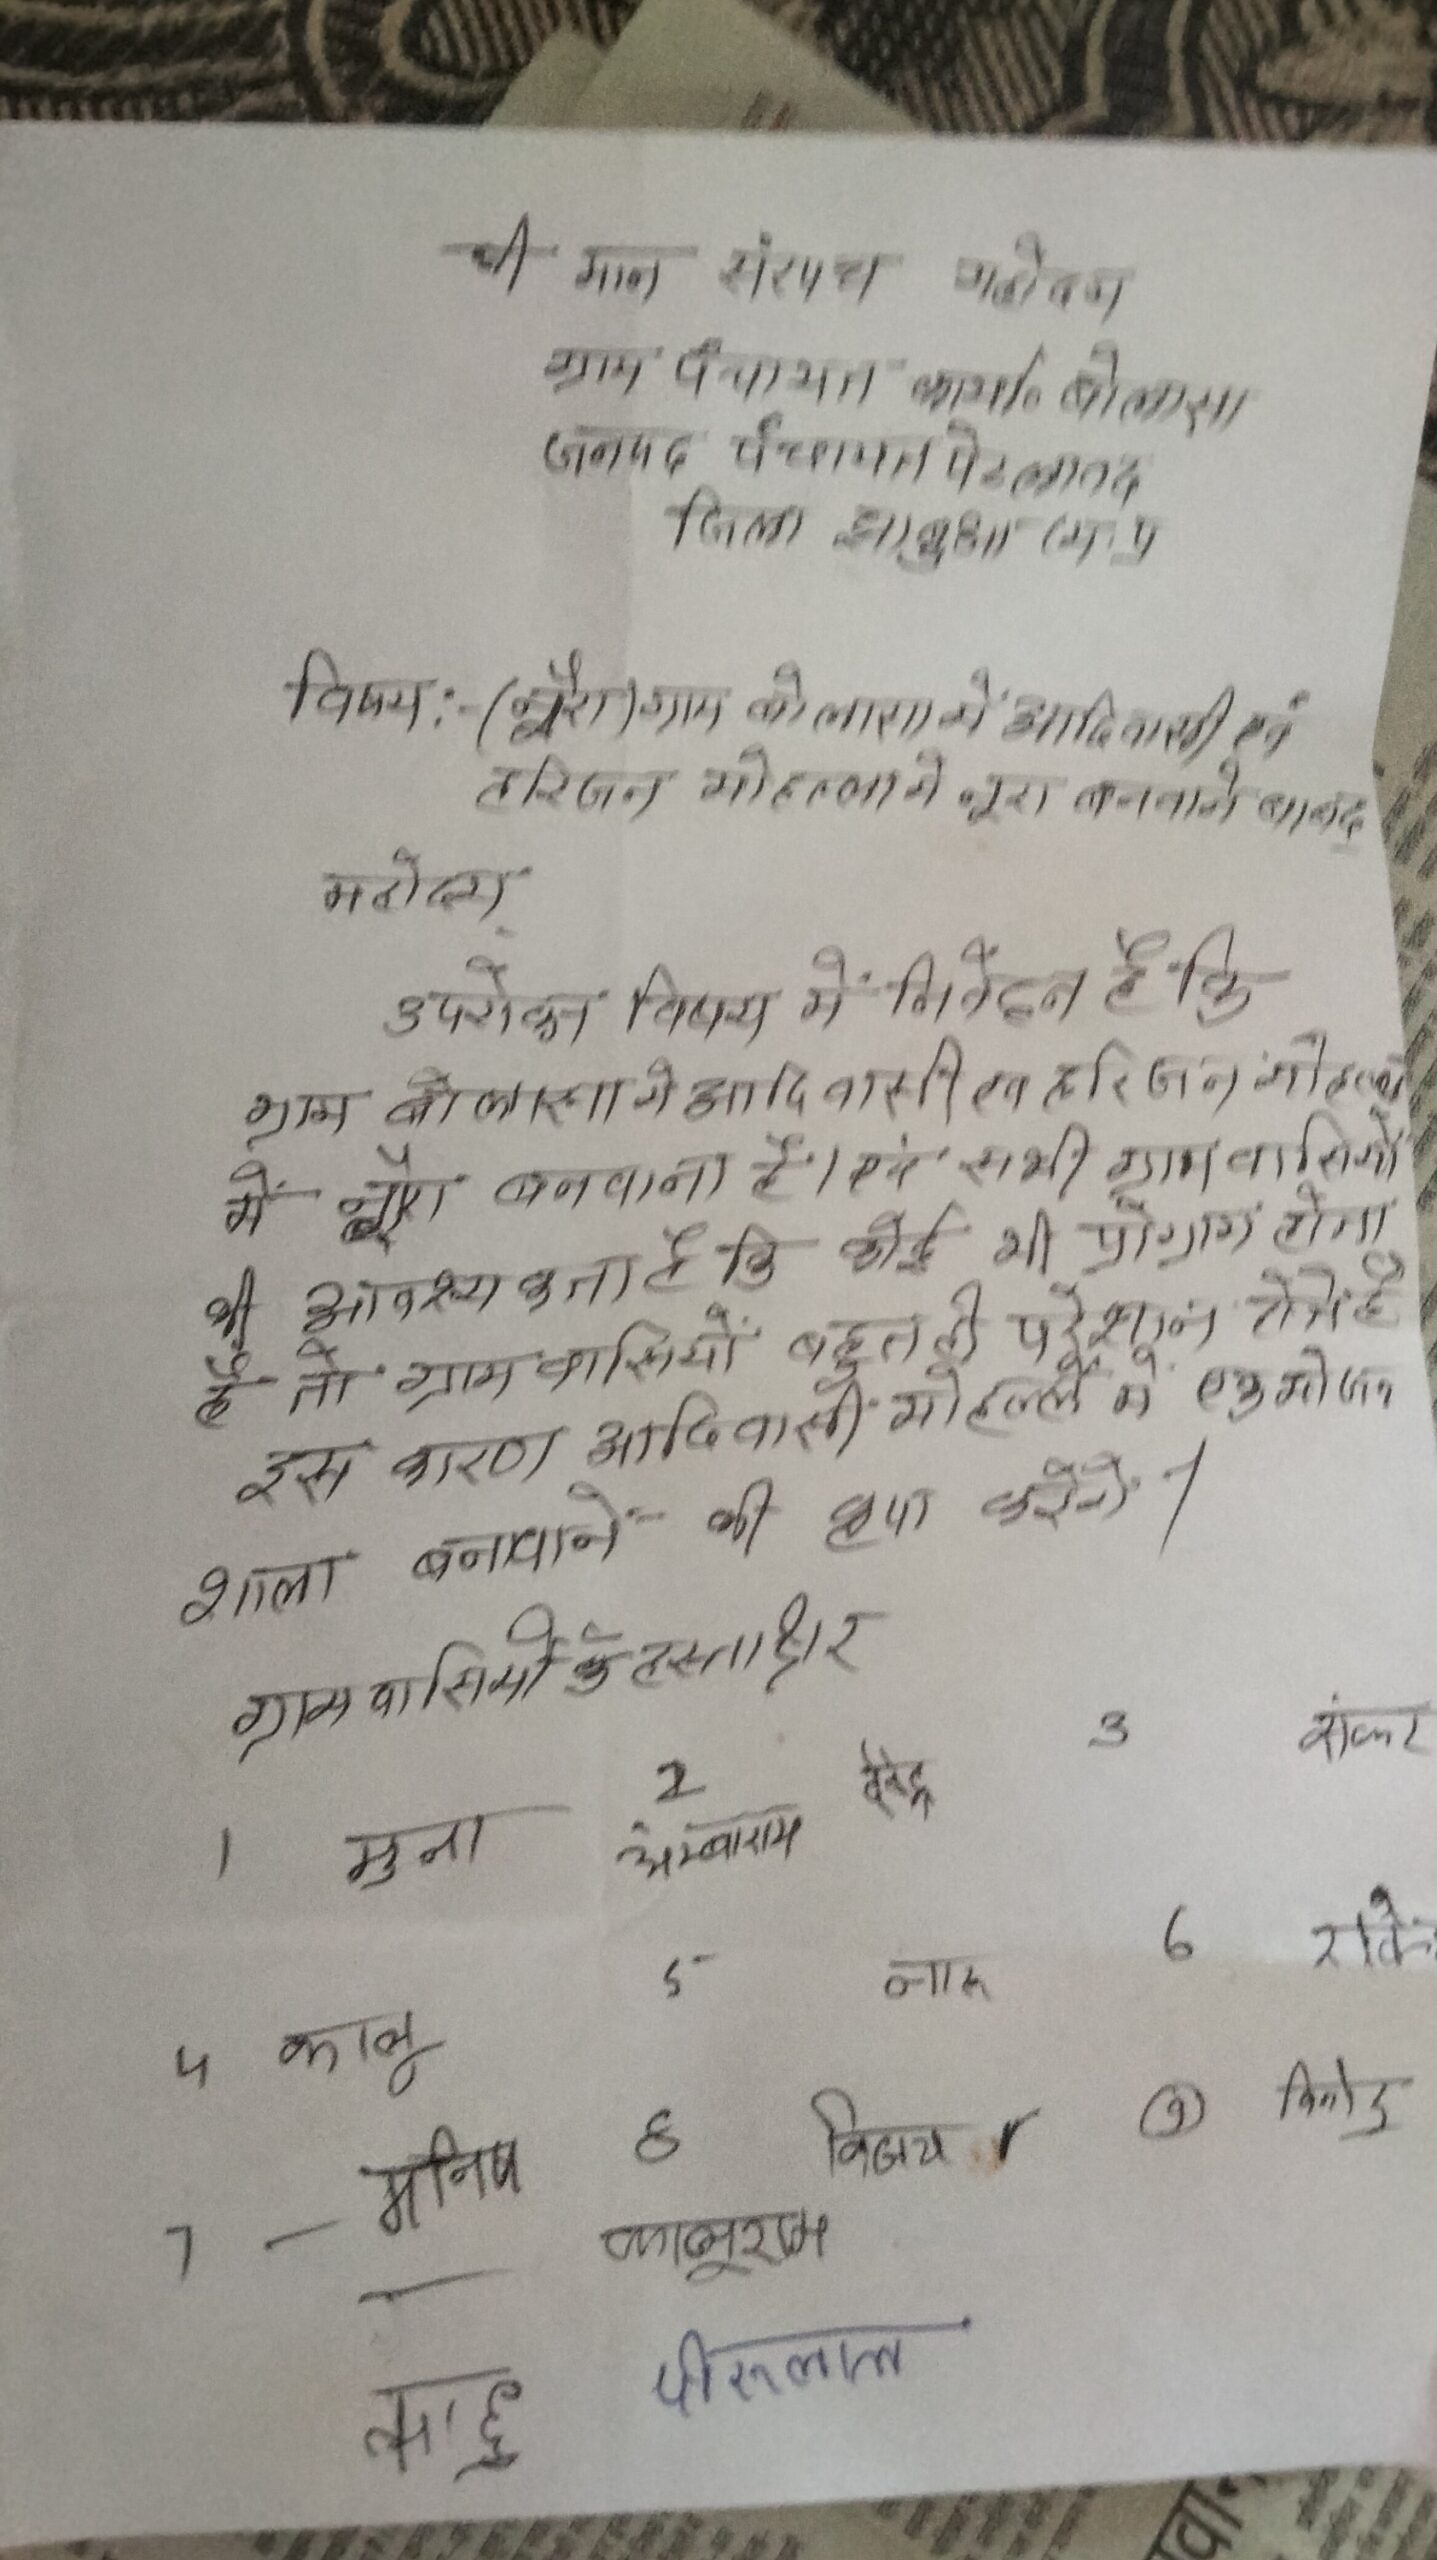 श्री मान संरपच महोदय
ग्राम पंचायत कार्या० बोलासा
जनपद पंचायत पेटलावद
जिला झाबुआ (म.प्र
विषय:- ग्राम बोलासा में आदिवासी एवं
हरिजन मोहल्ला मे बनवाने बाबद
महोदय,
उपरोक्त विषय में निवेदन है कि
ग्राम बोलासा मे आदिवासी एव हरिजन मोहल्ले
में बनवाना है। एवं सभी ग्राम वासियों
की आवश्यकता है कि कोई भी प्रोग्राम होता
है तो ग्राम वासियों बहुत ही परेशान होते है
इस कारण आदिवासी मोहल्ले में एक भोजन
शाला बनवाने की कृपा करेंगे।
ग्रामवासियों के हस्ताक्षर
1 मुना 2 अम्बाराम देवेन्द्र 3 शंकर
4 कालू 5 नारू 6
7 — मनिष 8 विजय 9 विनोद
कालूराम
पीरूलाल